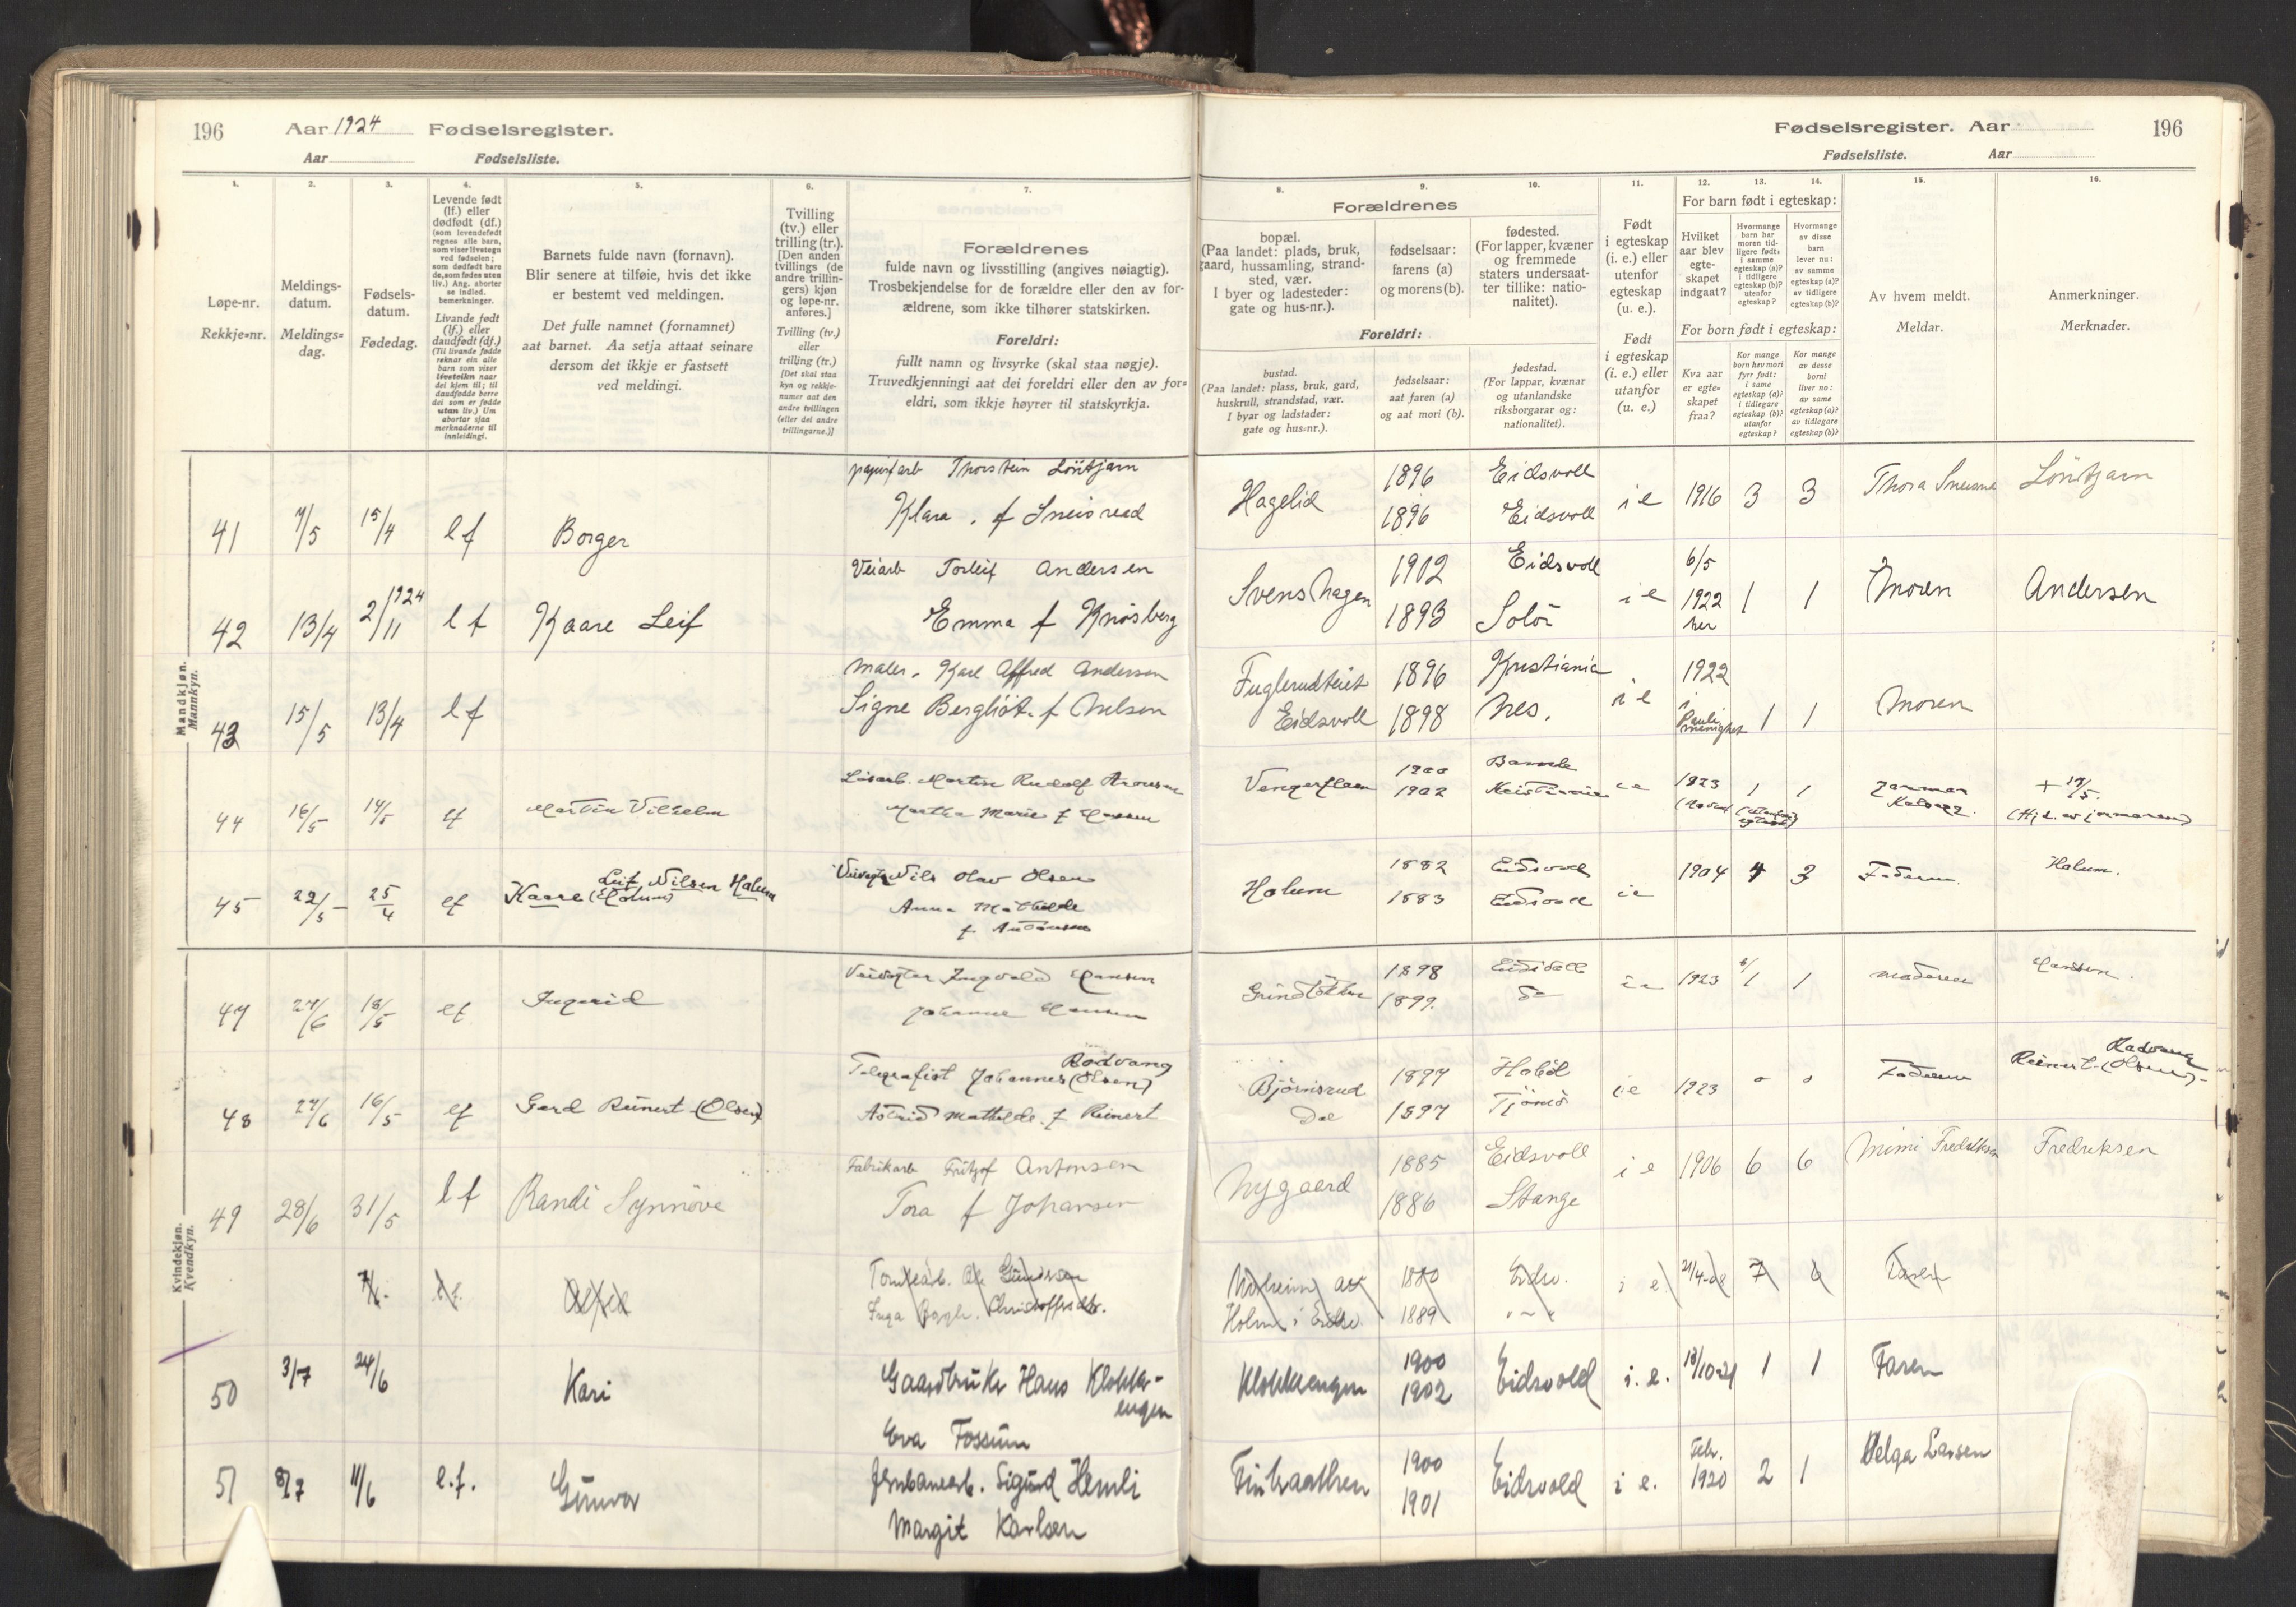 196
Aar 1924 Fødselsregister.
Aar Fødselsliste.
Fødselsregister. Aar
196
Fødselsliste. Aar
1. 2. 3. 4. 5. 6. 7. 8. 9. 10. 11. 12. 13. 14. 15. 16.
Løpe-nr.
Rekkje-nr.
Meldings-
datum.
Meldings-
dag.
Fødsels-
datum.
Fødedag.
Levende født
(lf.) eller
dødfødt (df.)
(som levendefødt
regnes alle barn,
som viser livstegn
ved fødselen;
som dødfødt bare
de, som fødes uten
liv.) Ang. aborter
se indled.
bemerkninger.
Livande født
(lf.) eller
daudfødt (df.)
(Til livande fødde
reknar ein alle
barn som viser
livsteikn naar
dei kjem til; til
daudfødde berre
dei som er fødde
utan liv.) Um
abortar sjaa
merknaderne til
innleidingi.
Barnets fulde navn (fornavn).
Blir senere at tilføie, hvis det ikke
er bestemt ved meldingen.
Det fulle namnet (fornamnet)
aat barnet. Aa setja attaat seinare
dersom det ikkje er fastsett
ved meldingi.
Tvilling
(tv.) eller
trilling (tr.).
[Den anden
tvillings (de
andre trillin-
gers) kjøn
og løpe-nr.
anføres.]
Tvilling (tv.)
eller
trilling (tr.)
[Det skal staa
kyn og rekkje-
numer aat den
andre tvillingen
(eller dei andre
trillingarne.)]
Forældrenes
fulde navn og livsstilling (angives nøiagtig).
Trosbekjendelse for de forældre eller den av for-
ældrene, som ikke tilhører statskirken.
Foreldri:
fullt namn og livsyrke (skal staa nøgje).
Truvedkjenningi aat dei foreldri eller den av for-
eldri, som ikkje høyrer til statskyrkja.
Forældrenes
bopæl.
(Paa landet: plads, bruk,
gaard, hussamling, strand-
sted, vær.
I byer og ladesteder:
gate og hus-nr.).
fødselsaar:
farens (a)
og morens (b).
fødested.
(For lapper, kvæner
og fremmede
staters undersaat-
ter tillike: natio-
nalitet).
Foreldri:
bustad.
(Paa landet: plass, bruk, gard,
huskrull, strandstad, vær.
I byar og ladstader:
gate og hus-nr.).
fødselsaar:
aat faren (a)
og aat mori (b).
fødestad.
(For lappar, kvænar
og utanlandske
riksborgarar og:
nationalitet).
Født
i egteskap
(i. e.) eller
utenfor
egteskap
(u. e.).
Født
i egteskap
(i. e.) eller
utanfor
(u. e.)
For barn født i egteskap:
Hvilket
aar blev
egte-
skapet
indgaat?
Hvormange
barn har
moren tid-
ligere født,
i samme
egteskap (a)?
i tidligere
egteskap (b)?
utenfor
egteskap?
Hvormange
av disse
barn
lever nu:
av samme
egteskap (a)?
av tidligere
egteskap (b)?
For born født i egteskap:
Kva aar
er egte-
skapet
fraa?
Kor mange
born hev mori
fyrr født:
i same
egteskap (a)?
i tidlegare
egteskap (b)?
utanfor
egteskap?
Kor mange
av desse
borni
liver no:
av same
egteskap (a)?
av tidlegare
egteskap (b)?
Av hvem meldt.
Meldar.
Anmerkninger.
Merknader.
Mandkjøn.
Mannkyn.
papirfarb Thorstein Löntjarn
41 7/5 15/4 l f Borger
Klara . f Sneisreud
Hagelid 1896 Eidsvoll
1896 Eidsvoll
i e 1916 3 3 Thora Löntjarn
Veiarb Torleif Andersen
42 13/4 2/11 1924 l f Kaare Leif
Emma f Knösberg
Svenshagen 1902 Eidsvoll
1893 Solör
i e 6/5
1922
her
1 1 Moren Andersen
Maler. Karl Alfred Andersen
43 15/5 13/4 l f
Signe Bergliöt. f Nilsen
Fuglerudteiet 1896 Kristiania
Eidsvoll 1898 Nes.
i e 1922
i
Pauli
menighet
1 1 Moren
Lösarb. Martin Rudolf Aronsen
44 16/5 14/5 lf Martin Vilhelm
Martha Marie f Hansen
1900
1902 Kristiania
ie 1923 1 1 +
Leif Nilsen Holum
45 22/5 25/4 lf Kaare (Holum)
Veivogter Nils Olav Olsen
Anna Mathilde
f Antonsen
Holum 1882 Eidsvoll
1883 Eidsvoll
ie 1904 4 3 Faderen Holum.
Kvindekjøn.
Kvendkyn.
47 27/6 18/5 lf Ingerid
Veivogter Ingvald Hansen
Johanne Hansen
1898 Eidsvoll
1899. do
ie 1923 1 1 moderen Hansen.
48 27/6 16/5 lf Gerd Reinert (Olsen)
Rødvang
Telegrafist Johannes (Olsen)
Astrid Mathilde. f Reinert
Björnsrud 1897 Høböl
Dal 1897 Tjömö
ie 1923 0 0 Faderen
Reinert (Olsen)
49 28/6 31/5 l f Randi Synnöve
Fabrikarb Fritjof Antonsen
Tora f Johansen
Nygaard 1885 Eidsvoll
1886 Stange
i e 1906 6 6 Mimi Fredriksen Fredriksen
Ole Gundersen
1880 Eidsv.
Holm i Eidsv. 1889
i e. 7 6 Faren
50 3/7 24/6 Kari
Gaardbruker Hans Klokker-
engen
Eva Fossum
Klokkerengen 1900
1902 Eidsvold
i. e. 1 1 Faren
51 8/7 11/6 l.f. Gunvor
Jernbanearb. Sigurd Hemli
Margit Karlsen
Finbraathen 1900
1901 Eidsvold
i e. Feb.
1920 2 1 Helga Larsen